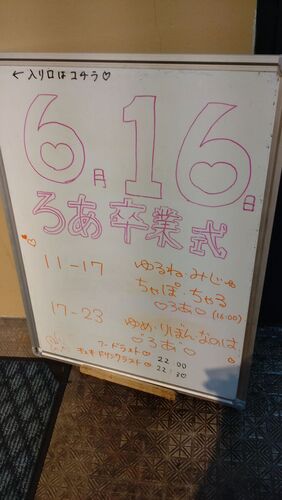 ←入り口はコチラ♡
6月16日
ろあ卒業式
11-17 ゆるね・みじゅ
ちゃぽ・ちゃる
♡ろあ♡(16:00)
17-23 ゆめ・りぼん・なのは
♡ろあ♡
フードラスト♡ 22:00
チェキドリンクラスト♡ 22:30